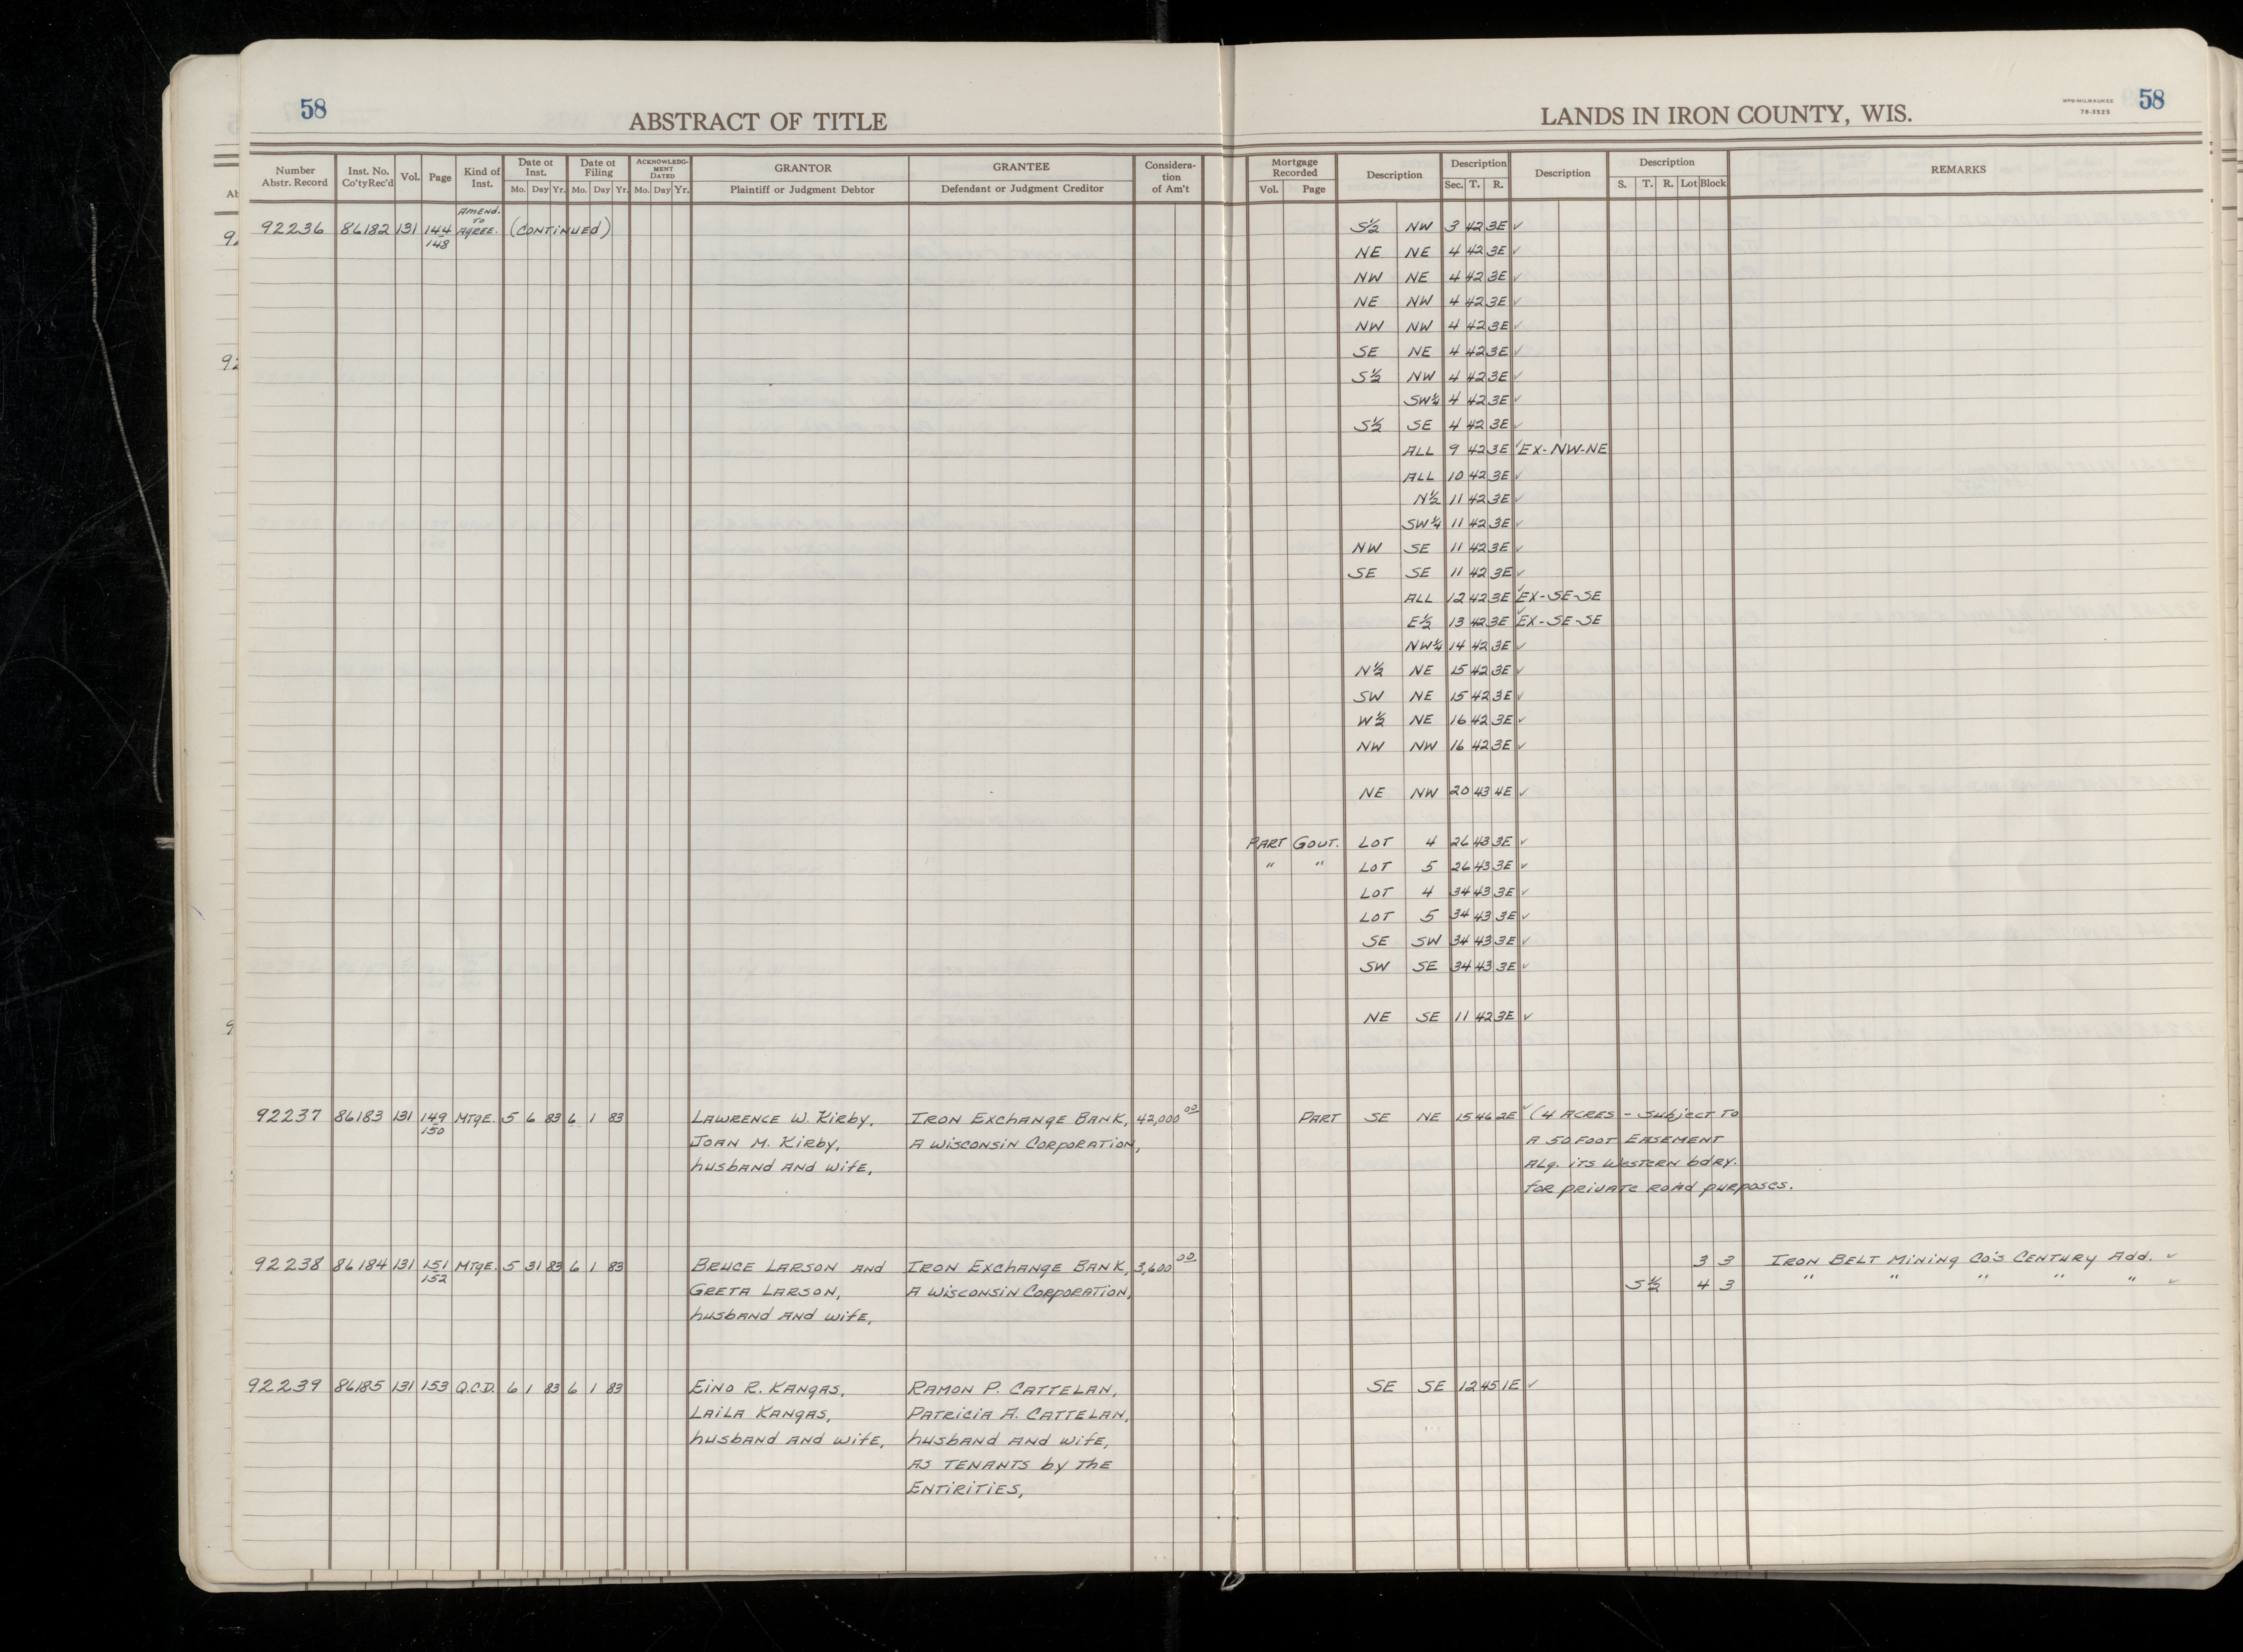 58
ABSTRACT OF TITLE
LANDS IN IRON COUNTY, WIS.
WPB-MILWAUKEE
78-3525
58
Number Abstr. Record
Inst. No. Co'ty Rec'd
Vol.
Page
Kind of Inst.
Date of Inst. Mo. Day Yr.
Date of Filing Mo. Day Yr.
ACKNOWLEDGMENT DATED Mo. Day Yr.
GRANTOR Plaintiff or Judgment Debtor
GRANTEE Defendant or Judgment Creditor
Consideration of Am't
Mortgage Recorded Vol. Page
Description
Description Sec. T. R.
Description
Description S. T. R. Lot Block
REMARKS
92236 86182 131 144 148 AMEND. TO AGREE. (CONTINUED) S½ NW 3 42 3E ✓
NE NE 4 42 3E ✓
NW NE 4 42 3E ✓
NE NW 4 42 3E ✓
NW NW 4 42 3E ✓
SE NE 4 42 3E ✓
S½ NW 4 42 3E ✓
SW¼ 4 42 3E ✓
S½ SE 4 42 3E ✓
ALL 9 42 3E ✓ EX-NW-NE
ALL 10 42 3E ✓
N½ 11 42 3E ✓
SW¼ 11 42 3E ✓
NW SE 11 42 3E ✓
SE SE 11 42 3E ✓
ALL 12 42 3E ✓ EX-SE-SE
E½ 13 42 3E ✓ EX-SE-SE
NW¼ 14 42 3E ✓
N½ NE 15 42 3E ✓
SW NE 15 42 3E ✓
W½ NE 16 42 3E ✓
NW NW 16 42 3E ✓
NE NW 20 43 4E ✓
PART GOVT. LOT 4 26 43 3E ✓
" " LOT 5 26 43 3E ✓
LOT 4 34 43 3E ✓
LOT 5 34 43 3E ✓
SE SW 34 43 3E ✓
SW SE 34 43 3E ✓
NE SE 11 42 3E ✓
92237 86183 131 149 150 MTGE. 5 6 83 6 1 83 LAWRENCE W. KIRBY, IRON EXCHANGE BANK, 42,000 00 PART SE NE 15 46 2E ✓ (4 ACRES - SUBJECT TO
JOAN M. KIRBY, A WISCONSIN CORPORATION, A 50 FOOT EASEMENT
HUSBAND AND WIFE, ALG. ITS WESTERN BDRY.
FOR PRIVATE ROAD PURPOSES.
92238 86184 131 151 152 MTGE. 5 31 83 6 1 83 BRUCE LARSON AND IRON EXCHANGE BANK, 3,600 00 3 3 IRON BELT MINING CO'S CENTURY ADD. ✓
GRETA LARSON, A WISCONSIN CORPORATION, S½ 4 3 " " " " " ✓
HUSBAND AND WIFE,
92239 86185 131 153 Q.C.D. 6 1 83 6 1 83 EINO R. KANGAS, RAMON P. CATTELAN, SE SE 12 45 1E ✓
LAILA KANGAS, PATRICIA A. CATTELAN,
HUSBAND AND WIFE, HUSBAND AND WIFE,
AS TENANTS BY THE
ENTIRITIES,